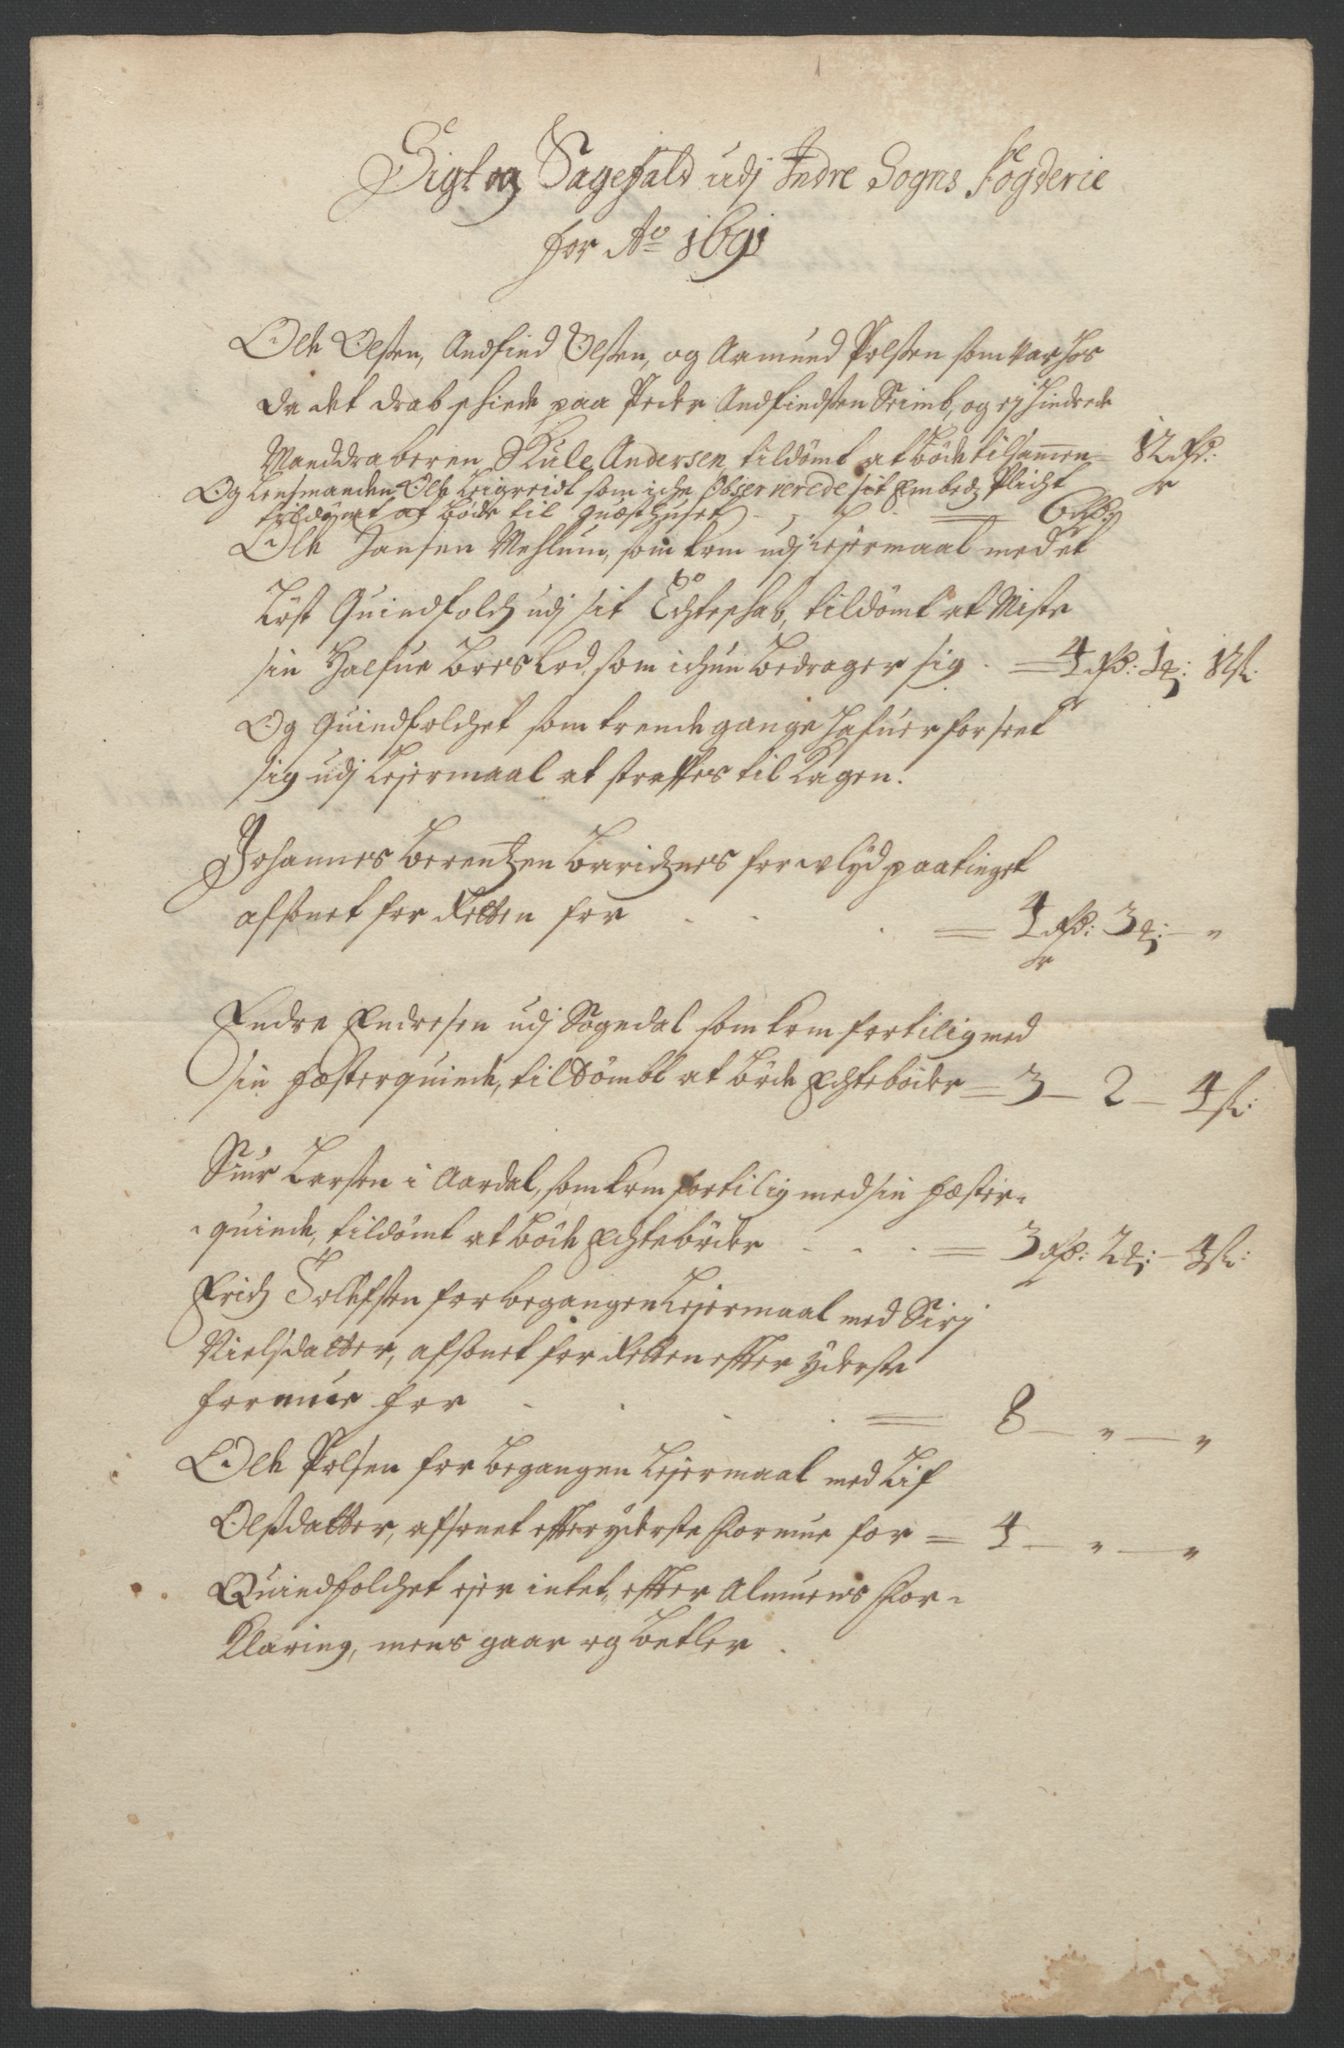 Sigt og Sagefald udj Indre Sogns Fogderie
for Ao 1691
Ole Olsen, Andfind Olsen, og Aamund Polsen som var hos
da det drab schiede paa Peder Andfindsen Seimb, og ej hindrede
Manddraberen Skule Andersen tildömt at böde tilsamen 12 rdr:
Og Lensmanden Ole Leigreidt som iche Observerede sit Embedz Plicht
tildömt at böde til Quæsthuset = 6 rdr
Ole Jansen Mehlum, som kom udj Lejermaal med et
Löst Quindfolch udj sit Echteschab, tildömt at Miste
sin halfue Boes Lod, som ichun bedrager sig = 4 rdr: 1 ¶: 12 sk:
Og Quindfolchet som trende gange hafuer forseet
sig udj Lejermaal at straffes til Kagen.
Johannes Berentzen for ulyd paa tinget
afsonet for Retten for = 4 rdr: 3 ¶: — "
Endre Endresen udj Sogndal som kom fortilig med
sin fæsterquinde, tildömbt at böde Echteböder = 3 — 2 — 4 sk:
Siur Larsen i Aardal, som kom fortilig med sin fæster-
quinde, tildömt at böde Echteböder = 3 rdr: 2 ¶: — 4 sk:
Erich Tolefsen for begangen Lejermaal med Sirj
Nielsdatter, afsonet for Retten effter yderste
formue for = 8 — " — "
Ole Polsen for begangen Lejermaal med Lif
Olsdatter, afsonet effter yderste formue for = 4 — " — "
Quindfolchet ejer intet, effter Almuens For-
klaring, mens gaar og betler.